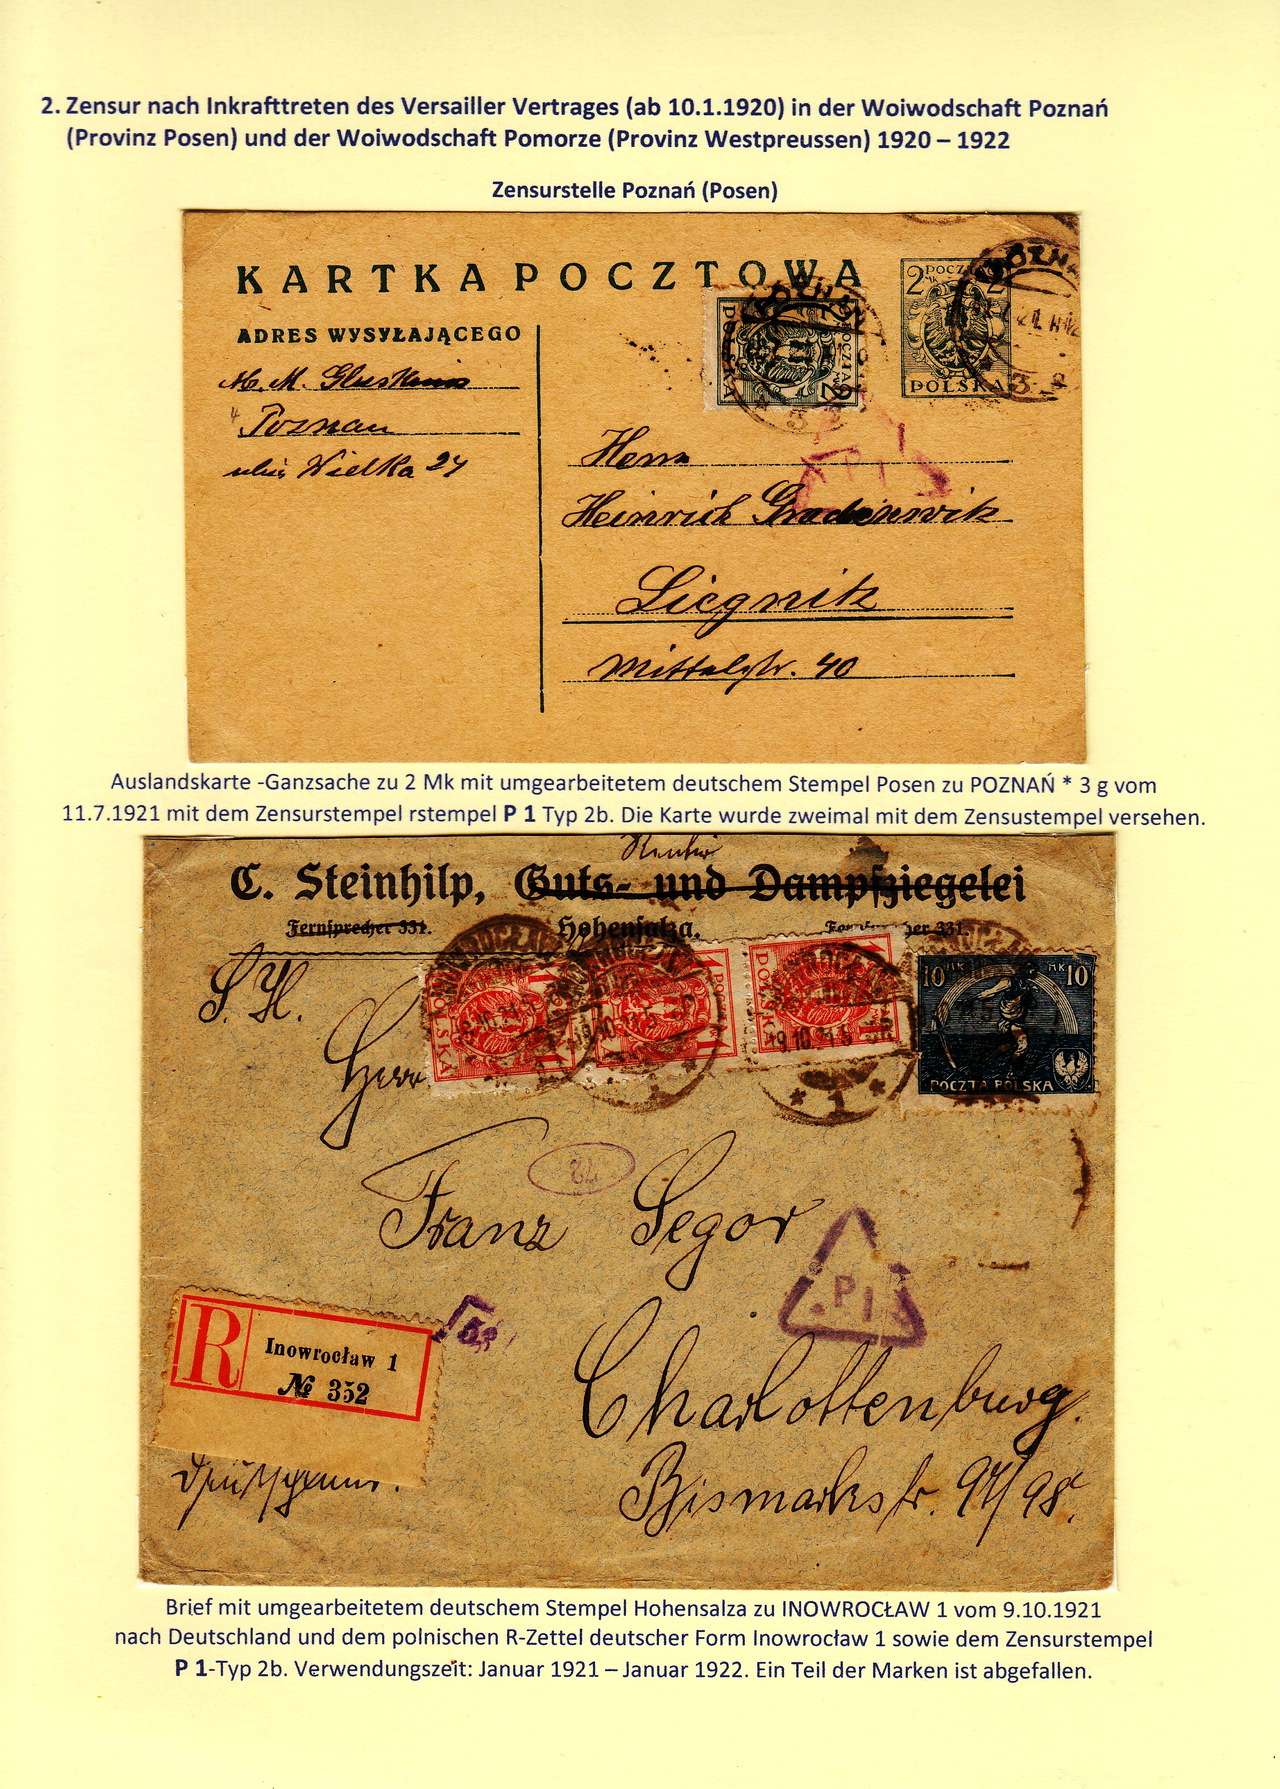 2. Zensur nach Inkrafttreten des Versailler Vertrages (ab 10.1.1920) in der Woiwodschaft Poznań
(Provinz Posen) und der Woiwodschaft Pomorze (Provinz Westpreussen) 1920 – 1922
Zensurstelle Poznań (Posen)
KARTKA POCZTOWA
ADRES WYSYŁAJĄCEGO
M. M.
Poznan
ulica Wielka 24
2 POCZTA 2
MK
POLSKA
POLSKA
POCZTA
2
3
3
P 1
Herrn
Heinrich
Liegnitz
Mittelstr. 40
Auslandskarte -Ganzsache zu 2 Mk mit umgearbeitetem deutschem Stempel Posen zu POZNAŃ * 3 g vom
11.7.1921 mit dem Zensurstempel rstempel P 1 Typ 2b. Die Karte wurde zweimal mit dem Zensustempel versehen.
C. Steinhilp, Guts- und Dampfziegelei
Fernsprecher 331. Hohensalza. Fernsprecher 331.
S. H.
Herrn
INOWROCŁAW
POLSKA
1
POLSKA
1
9.10.21.5
* 1 *
10 MK MK 10
POCZTA POLSKA
Franz Segor
P 1
R Inowrocław 1
№ 352
Charlottenburg.
Bismarkstr. 97/98.
Brief mit umgearbeitetem deutschem Stempel Hohensalza zu INOWROCŁAW 1 vom 9.10.1921
nach Deutschland und dem polnischen R-Zettel deutscher Form Inowrocław 1 sowie dem Zensurstempel
P 1-Typ 2b. Verwendungszeit: Januar 1921 – Januar 1922. Ein Teil der Marken ist abgefallen.